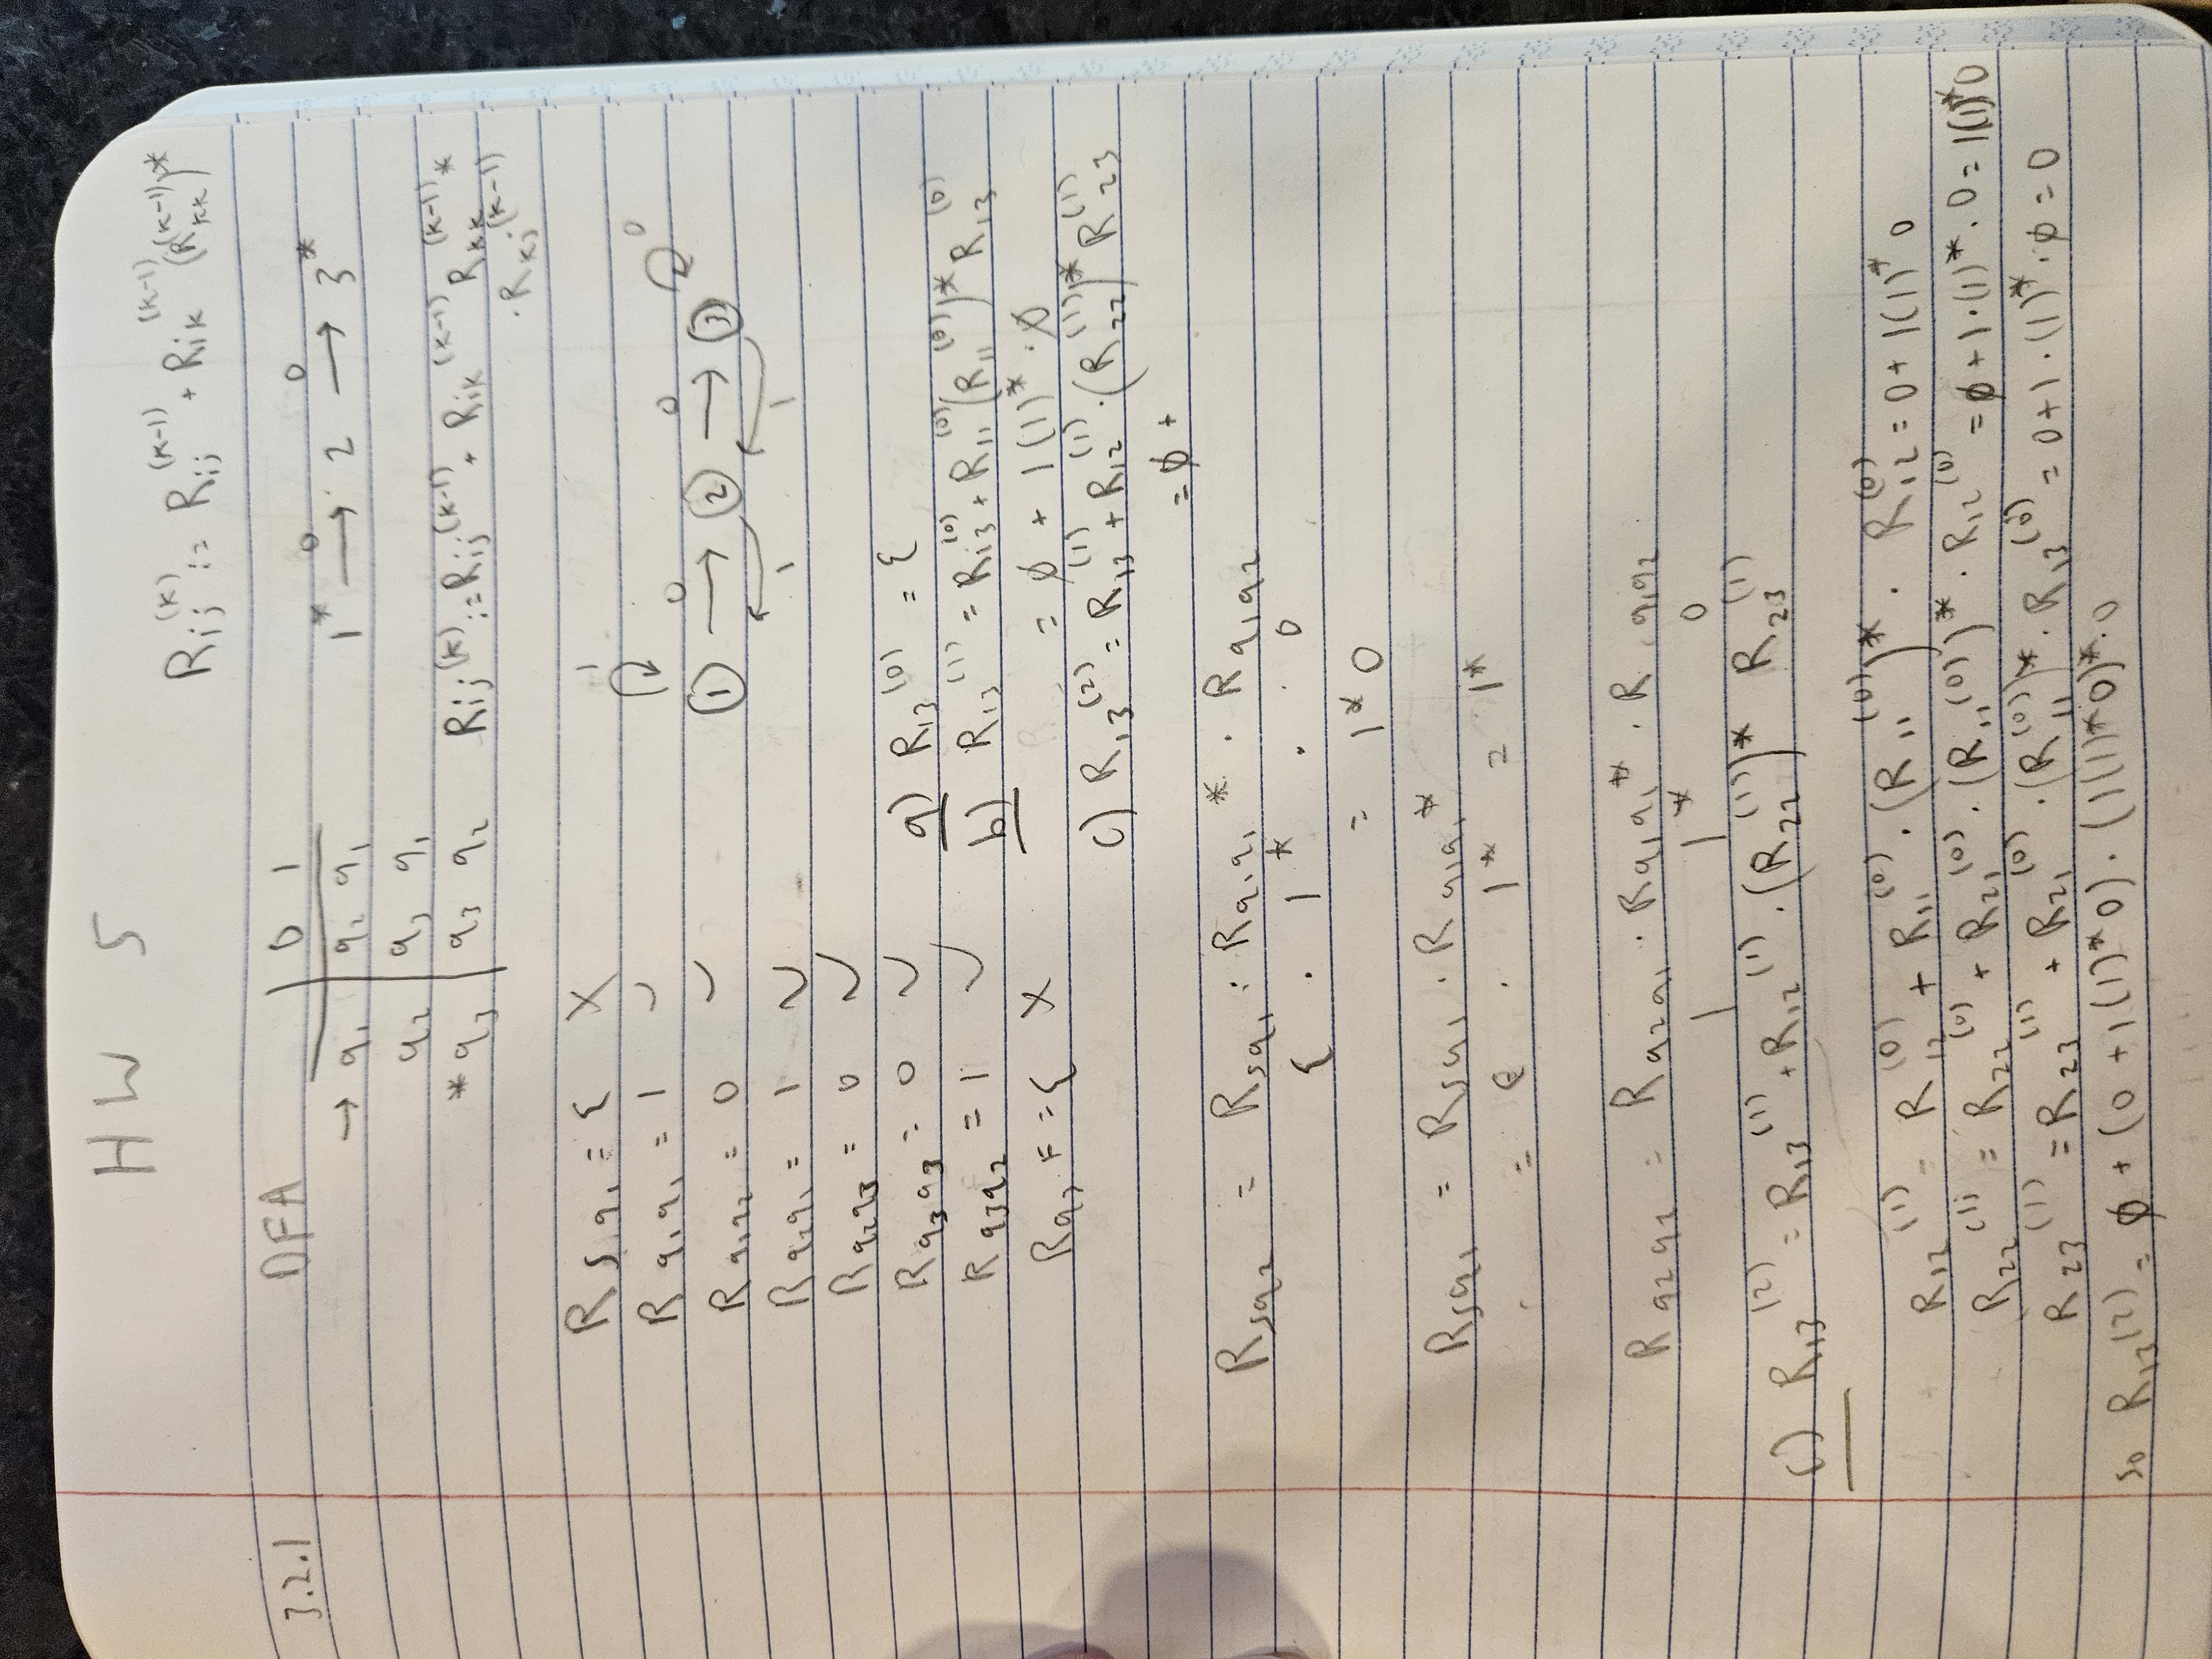 HW 5
Rij^(k) := Rij^(k-1) + Rik^(k-1) (Rkk^(k-1))*
3.2.1 DFA 0 1
→ q1 q2 q1 1* →0 2 →0 3*
q2 q3 q1
*q3 q3 q2 Rij^(k) := Rij^(k-1) + Rik^(k-1) Rkk^(k-1)*
· Rkj^(k-1)
R s,q1 = ε X
R q1q1 = 1 ✓
R q1q2 = 0 ✓
R q2q1 = 1 ✓
R q2q3 = 0 ✓
R q3q3 = 0 ✓
R q3q2 = 1 ✓
R q3 F = ε X
1
0 0 0
1 2 3
1 1
a) R13^(0) = ε
b) R13^(1) = R13^(0) + R11^(0) (R11^(0))* R13^(0)
= ∅ + 1(1)* · ∅
c) R13^(2) = R13^(1) + R12^(1) · (R22^(1))* R23^(1)
= ∅ +
Rsq2 = Rsq1 · Rq1q1* · Rq1q2
ε · 1* · 0
= 1*0
Rsq1 = Rsq1 · Rq1q1*
= ε · 1* = 1*
R q2q2 = R q2q1 · R q1q1* · R q1q2
1 1* 0
c) R13^(2) = R13^(1) + R12^(1) · (R22^(1))* R23^(1)
R12^(1) = R12^(0) + R11^(0) · (R11^(0))* · R12^(0) = 0 + 1(1)* 0
R22^(1) = R22^(0) + R21^(0) · (R11^(0))* · R12^(0) = ∅ + 1·(1)* · 0 = 1(1)*0
R23^(1) = R23^(1) + R21^(0) · (R11^(0))* · R13^(0) = 0 + 1·(1)* · ∅ = 0
so R13^(2) = ∅ + (0 + 1(1)*0) · (1(1)*0)* · 0